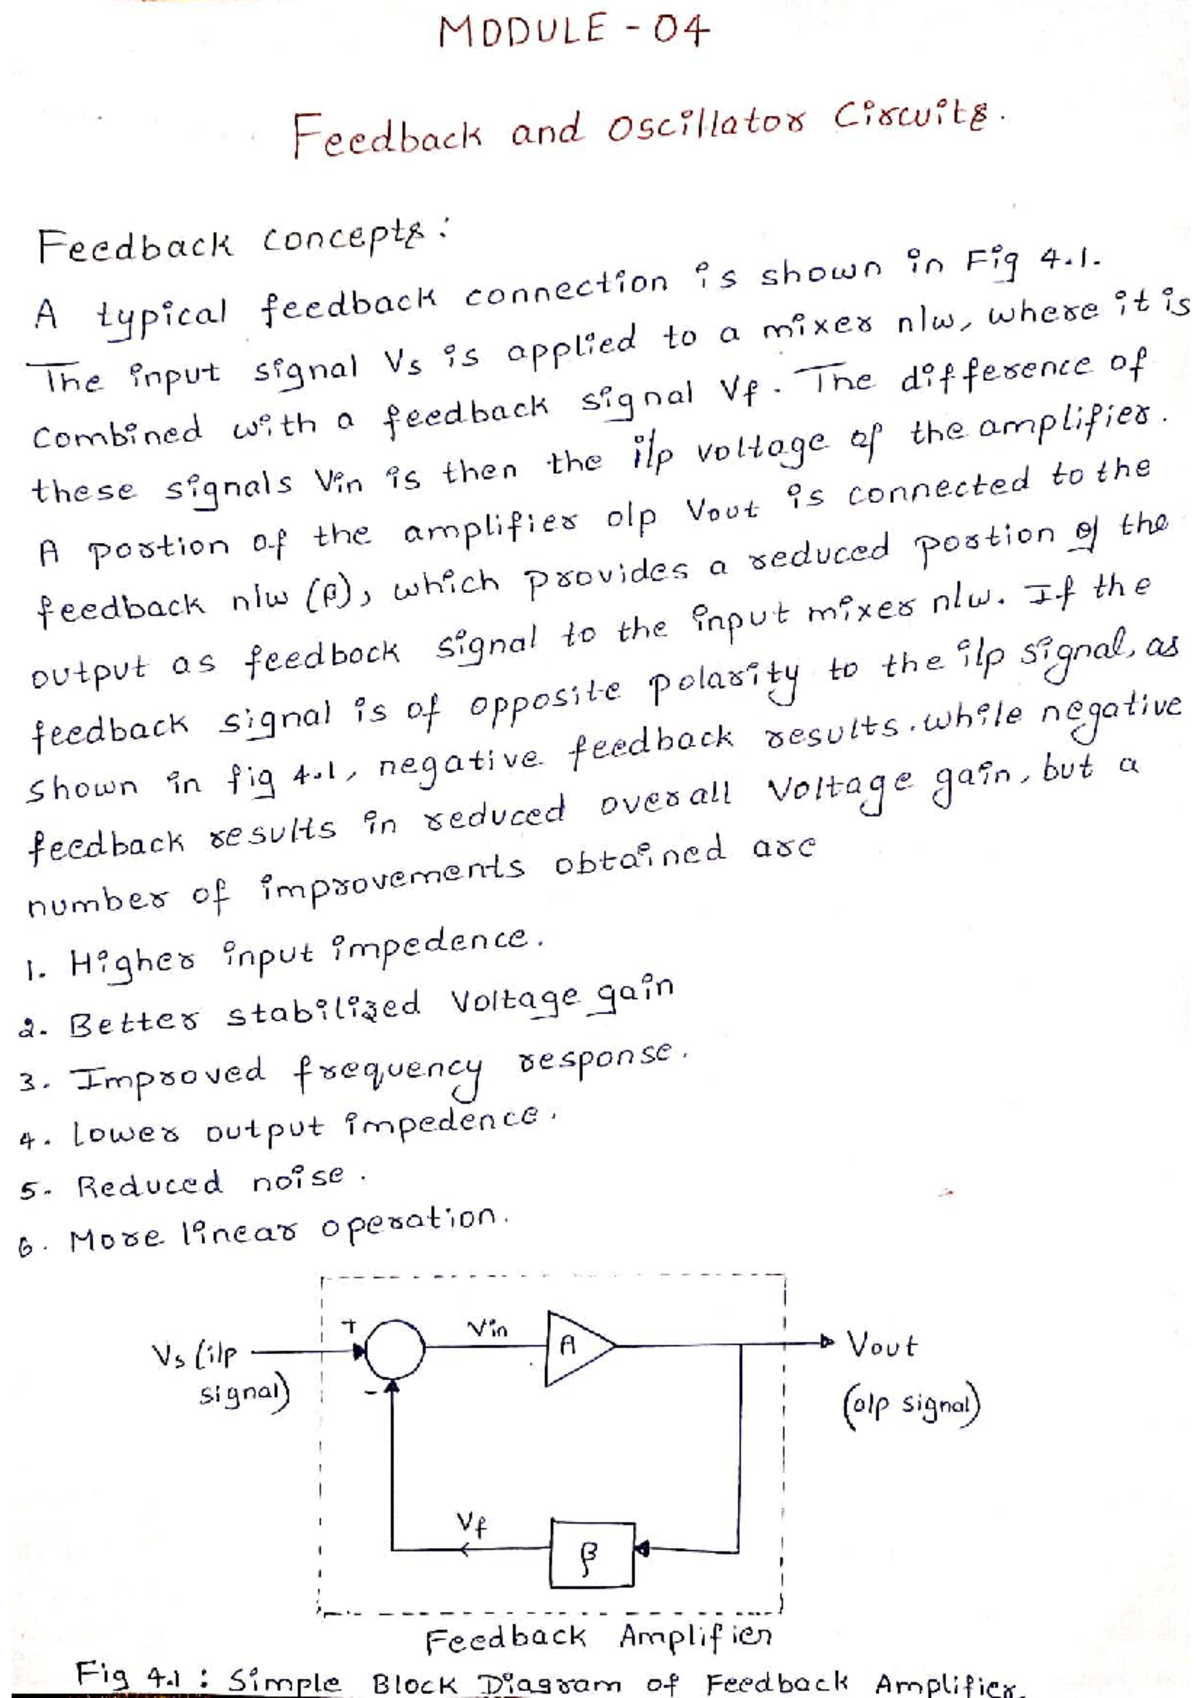 MODULE - 04
Feedback and Oscillator Circuits.
Feedback concepts:
A typical feedback connection is shown in Fig 4.1.
The input signal Vs is applied to a mixer n/w, where it is
combined with a feedback signal Vf. The difference of
these signals Vin is then the i/p voltage of the amplifier.
A portion of the amplifier o/p Vout is connected to the
feedback n/w (β), which provides a reduced portion of the
output as feedback signal to the input mixer n/w. If the
feedback signal is of opposite polarity to the i/p signal, as
shown in fig 4.1, negative feedback results. while negative
feedback results in reduced overall voltage gain, but a
number of improvements obtained are
1. Higher input impedence.
2. Better stabilized Voltage gain
3. Improved frequency response.
4. lower output impedence.
5. Reduced noise.
6. More linear operation.
Vs (i/p signal)
+
-
Vin
A
Vout
(o/p signal)
Vf
β
Feedback Amplifier
Fig 4.1 : Simple Block Diagram of Feedback Amplifier.